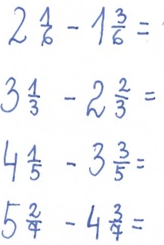 2 1/6 - 1 3/6 =
3 1/3 - 2 2/3 =
4 1/5 - 3 3/5 =
5 2/7 - 4 3/7 =